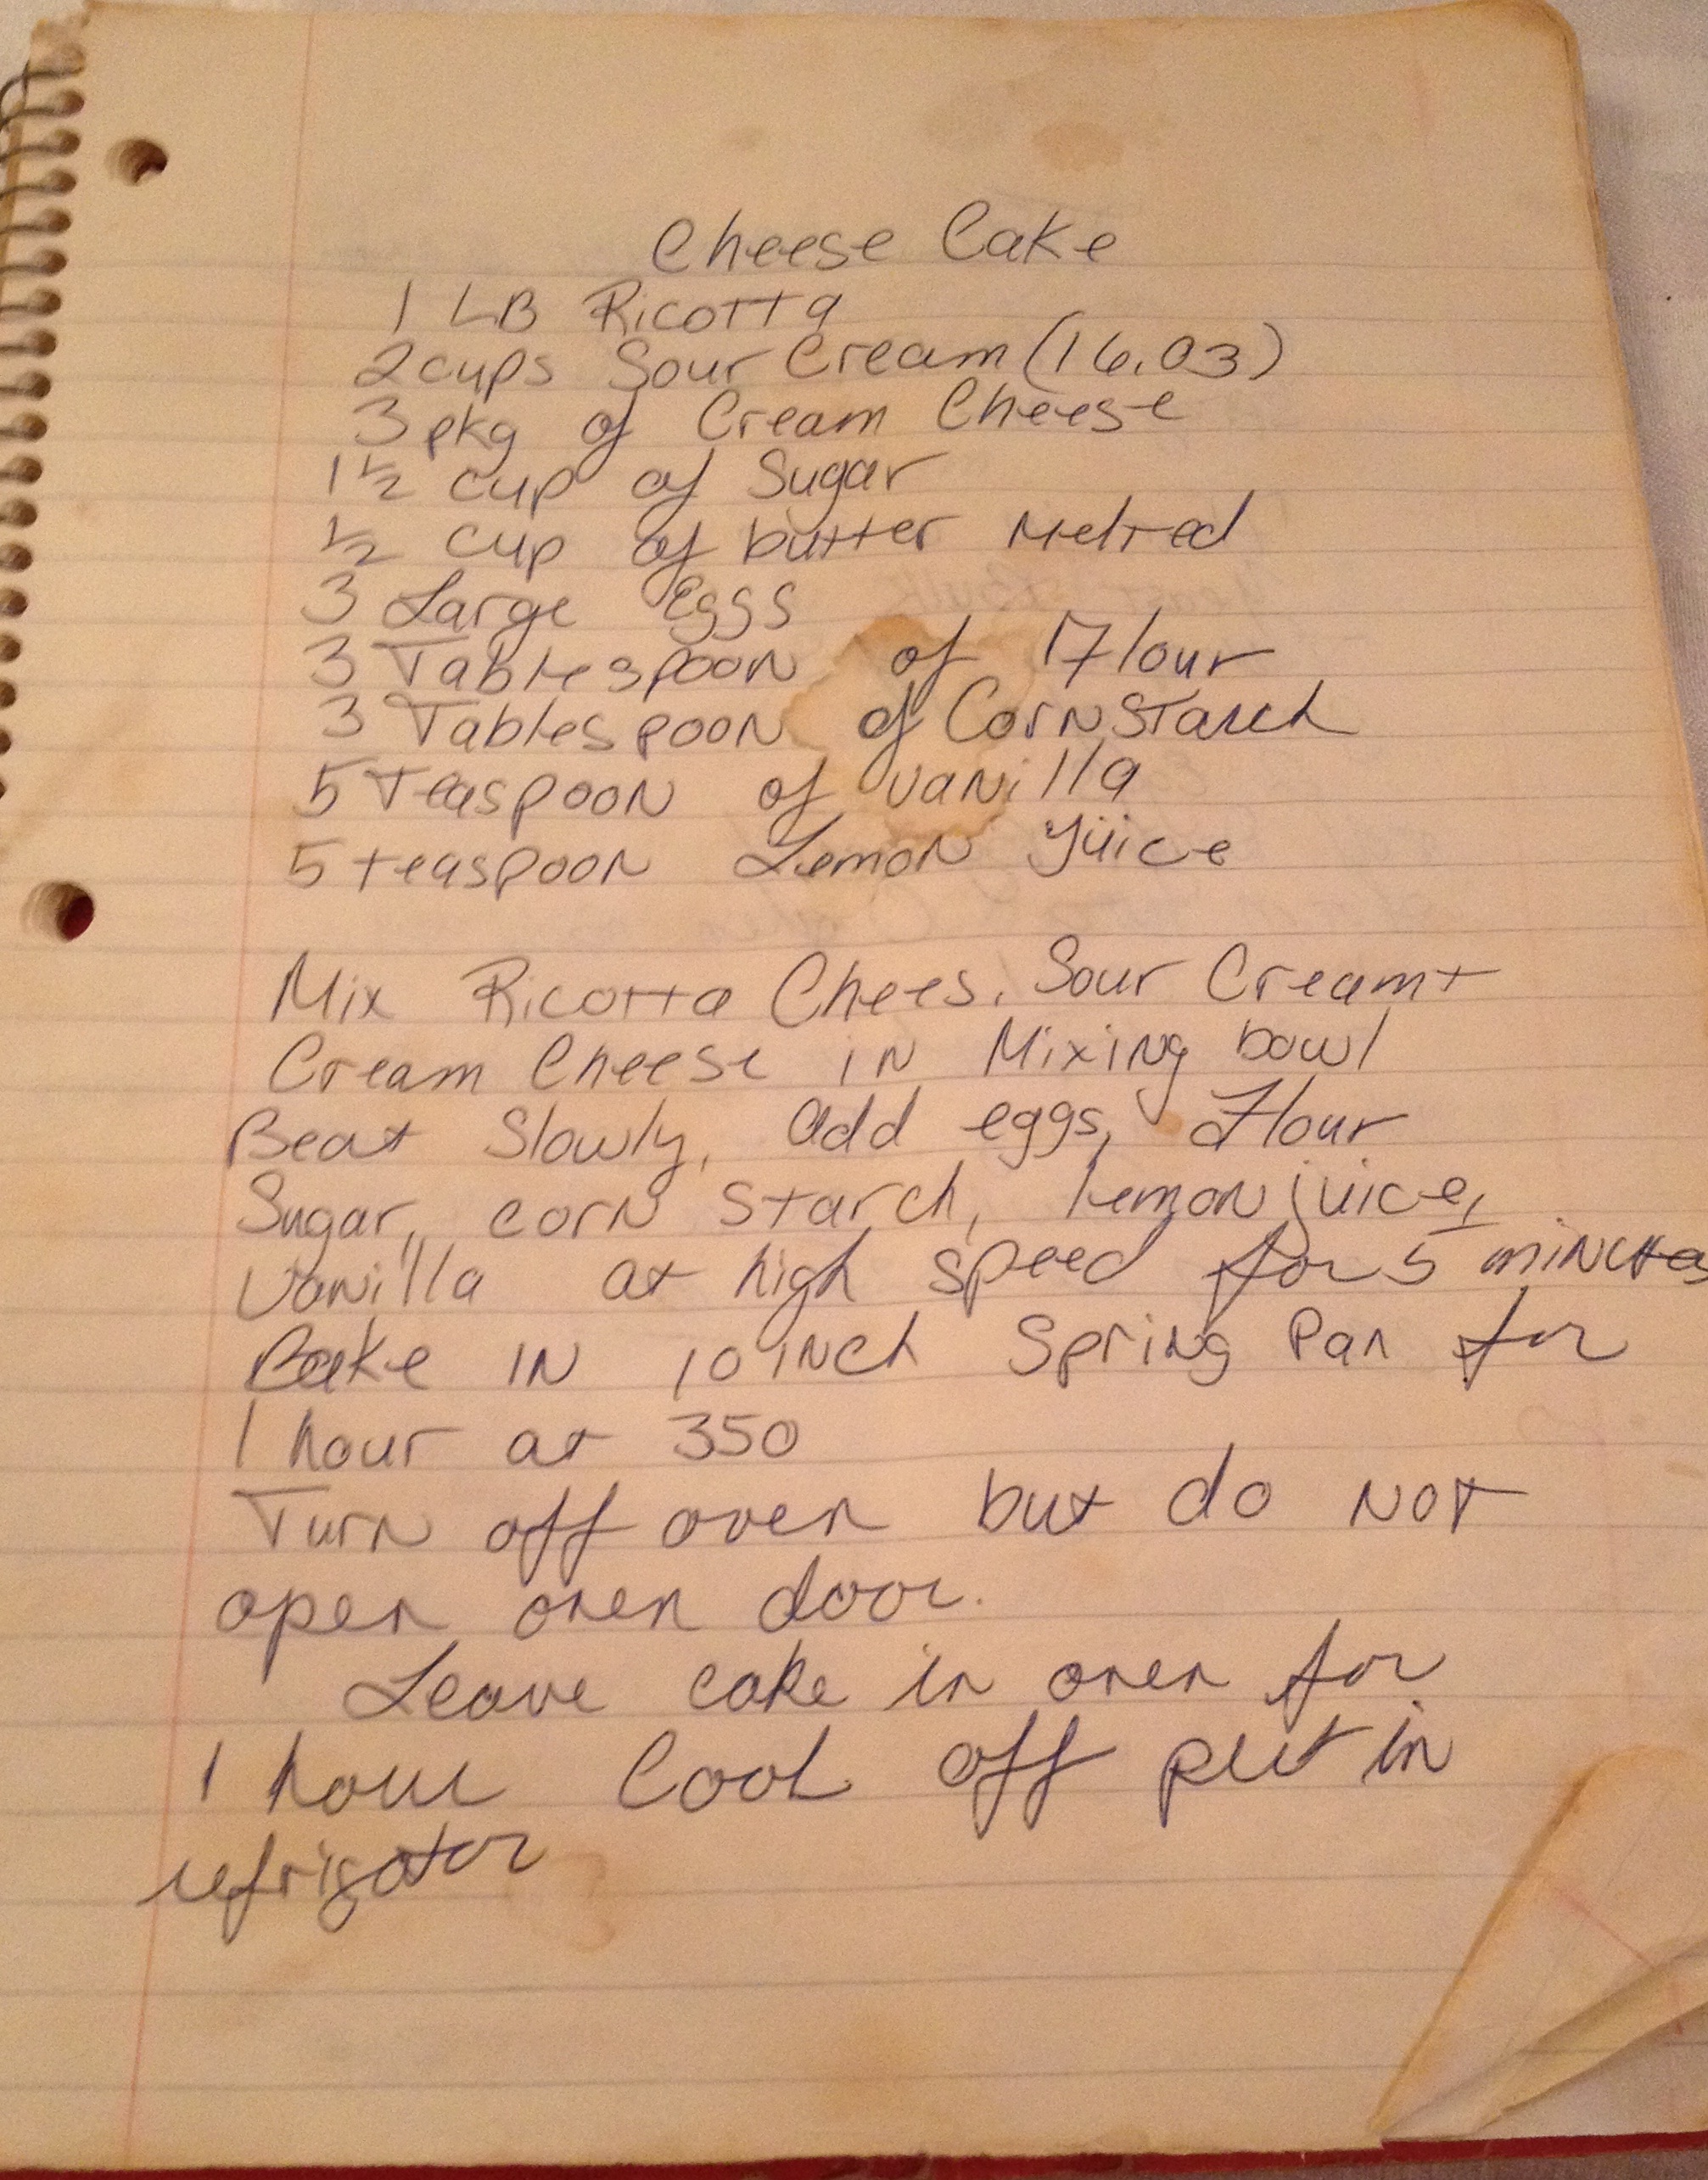 Cheese Cake
1 LB Ricotta
2 cups Sour Cream (16.03)
3 pkg of Cream Cheese
1 ½ cup of Sugar
½ cup of butter Melted
3 Large eggs
3 Tablespoon of Flour
3 Tablespoon of Cornstarch
5 Teaspoon of vanilla
5 teaspoon Lemon Juice
Mix Ricotta Chees, Sour Cream +
Cream Cheese in Mixing bowl
Beat Slowly, add eggs, Flour
Sugar, corn starch, lemon juice,
Vanilla at high speed for 5 minutes
Bake in 10 inch Spring Pan for
1 hour at 350
Turn off oven but do not
open oven door.
Leave cake in oven for
1 hour Cool off put in
refrigator